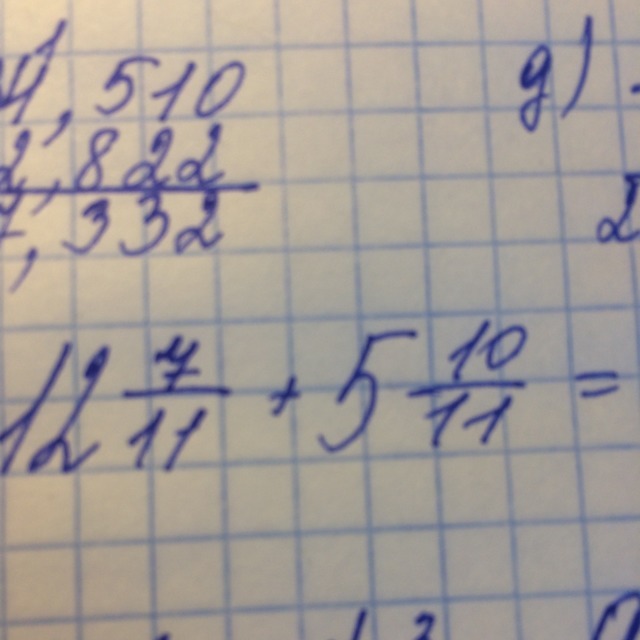 4,510
д)
2,822
7,332
12 7/11 + 5 10/11 =